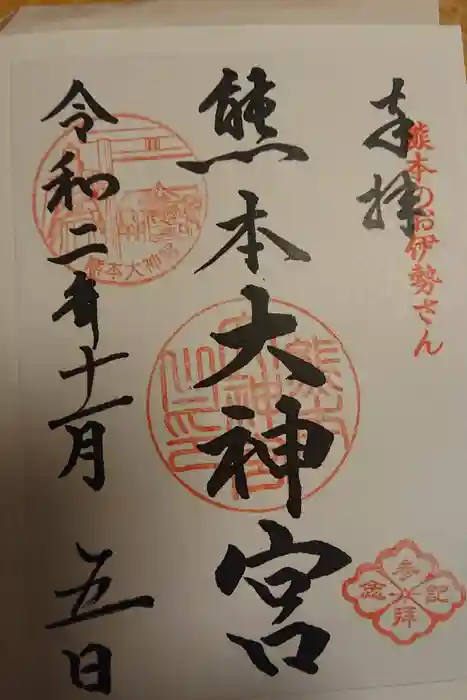 奉拝
熊本のお伊勢さん
熊本大神宮
令和二年十一月 五日
熊本大神宮
参拝記念